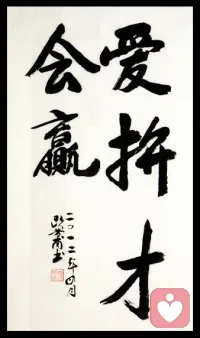 爱拚才
会赢
二〇一二年四月